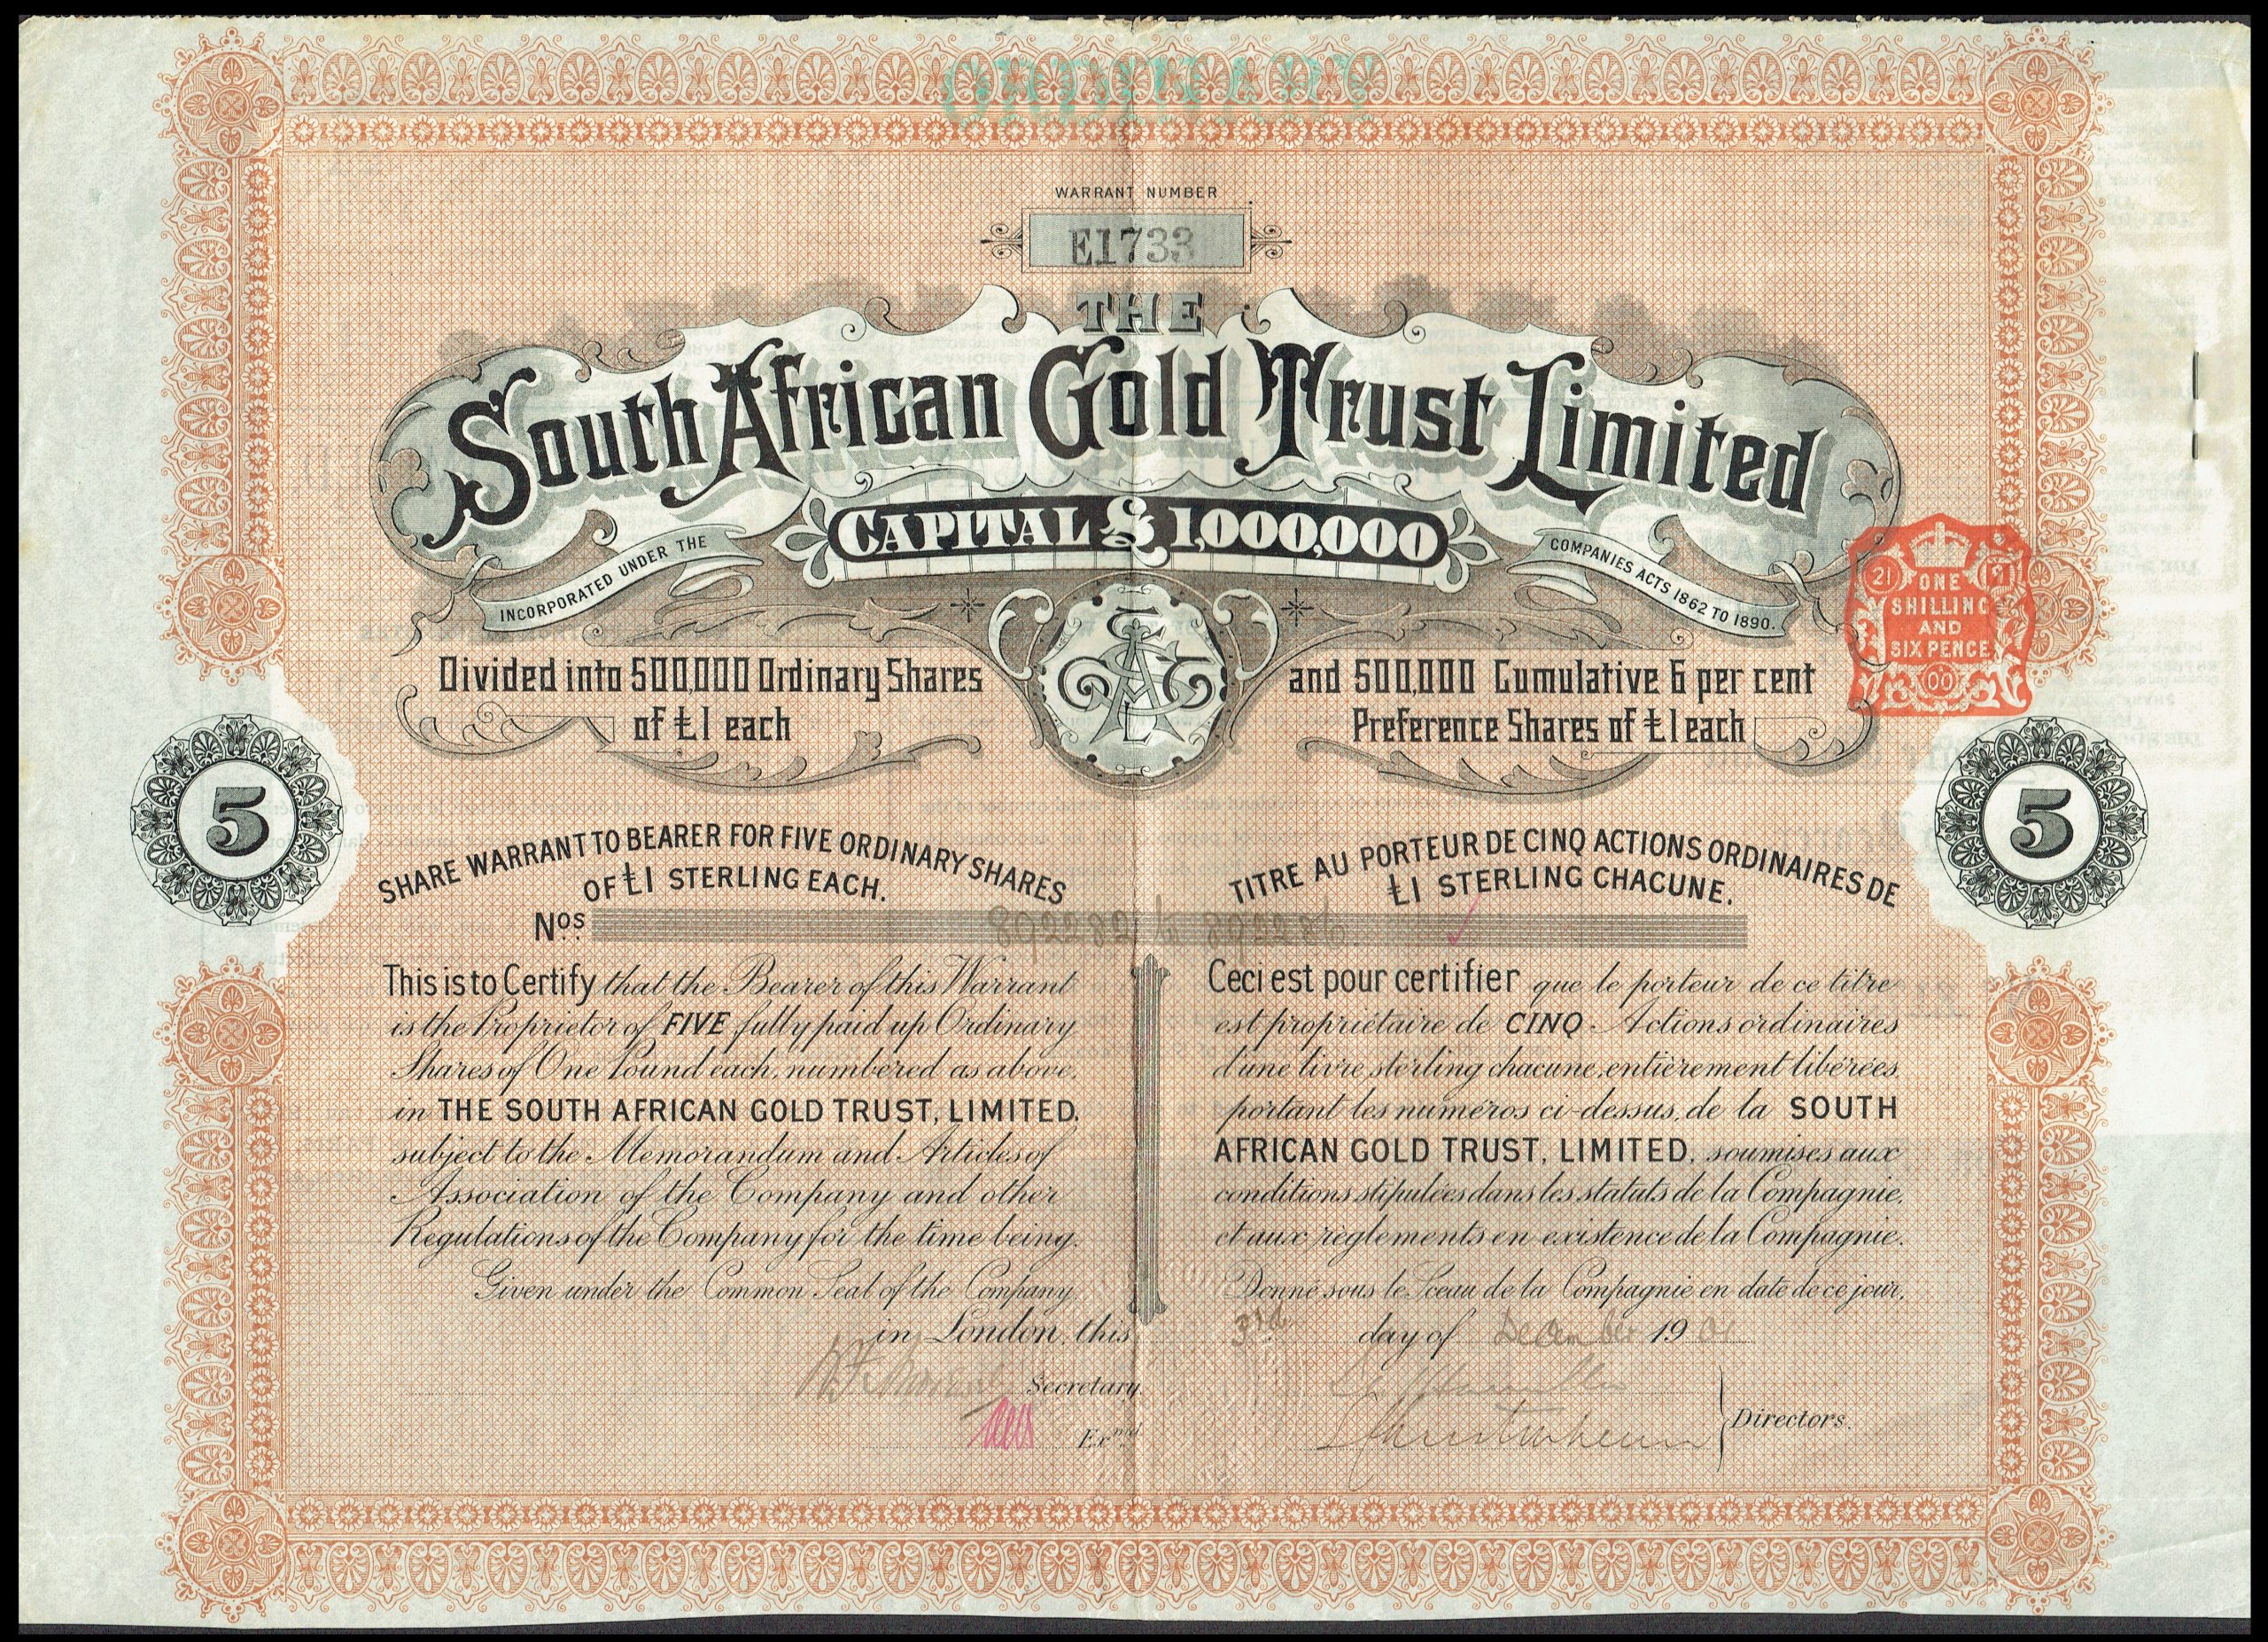 ORDINARY
WARRANT NUMBER
E1733
THE
South African Gold Trust Limited
CAPITAL £1,000,000
INCORPORATED UNDER THE
COMPANIES ACTS 1862 TO 1890.
21
ONE
SHILLING
AND
SIX PENCE
00
Divided into 500,000 Ordinary Shares
of £1 each
and 500,000 Cumulative 6 per cent
Preference Shares of £1 each
5
5
SHARE WARRANT TO BEARER FOR FIVE ORDINARY SHARES
OF £1 STERLING EACH.
TITRE AU PORTEUR DE CINQ ACTIONS ORDINAIRES DE
£1 STERLING CHACUNE.
Nos. 892282 to 892286
This is to Certify that the Bearer of this Warrant
is the Proprietor of FIVE fully paid up Ordinary
Shares of One Pound each, numbered as above,
in THE SOUTH AFRICAN GOLD TRUST, LIMITED,
subject to the Memorandum and Articles of
Association of the Company and other
Regulations of the Company for the time being.
Given under the Common Seal of the Company
Ceci est pour certifier que le porteur de ce titre
est propriétaire de CINQ Actions ordinaires
d'une livre sterling chacune, entièrement libérées,
portant les numéros ci-dessus, de la SOUTH
AFRICAN GOLD TRUST, LIMITED, soumises aux
conditions stipulées dans les statuts de la Compagnie,
et aux règlements en existence de la Compagnie.
Donné sous le Sceau de la Compagnie en date de ce jour,
in London, this 3rd day of December 1901
Secretary.
Exmd.
Directors.